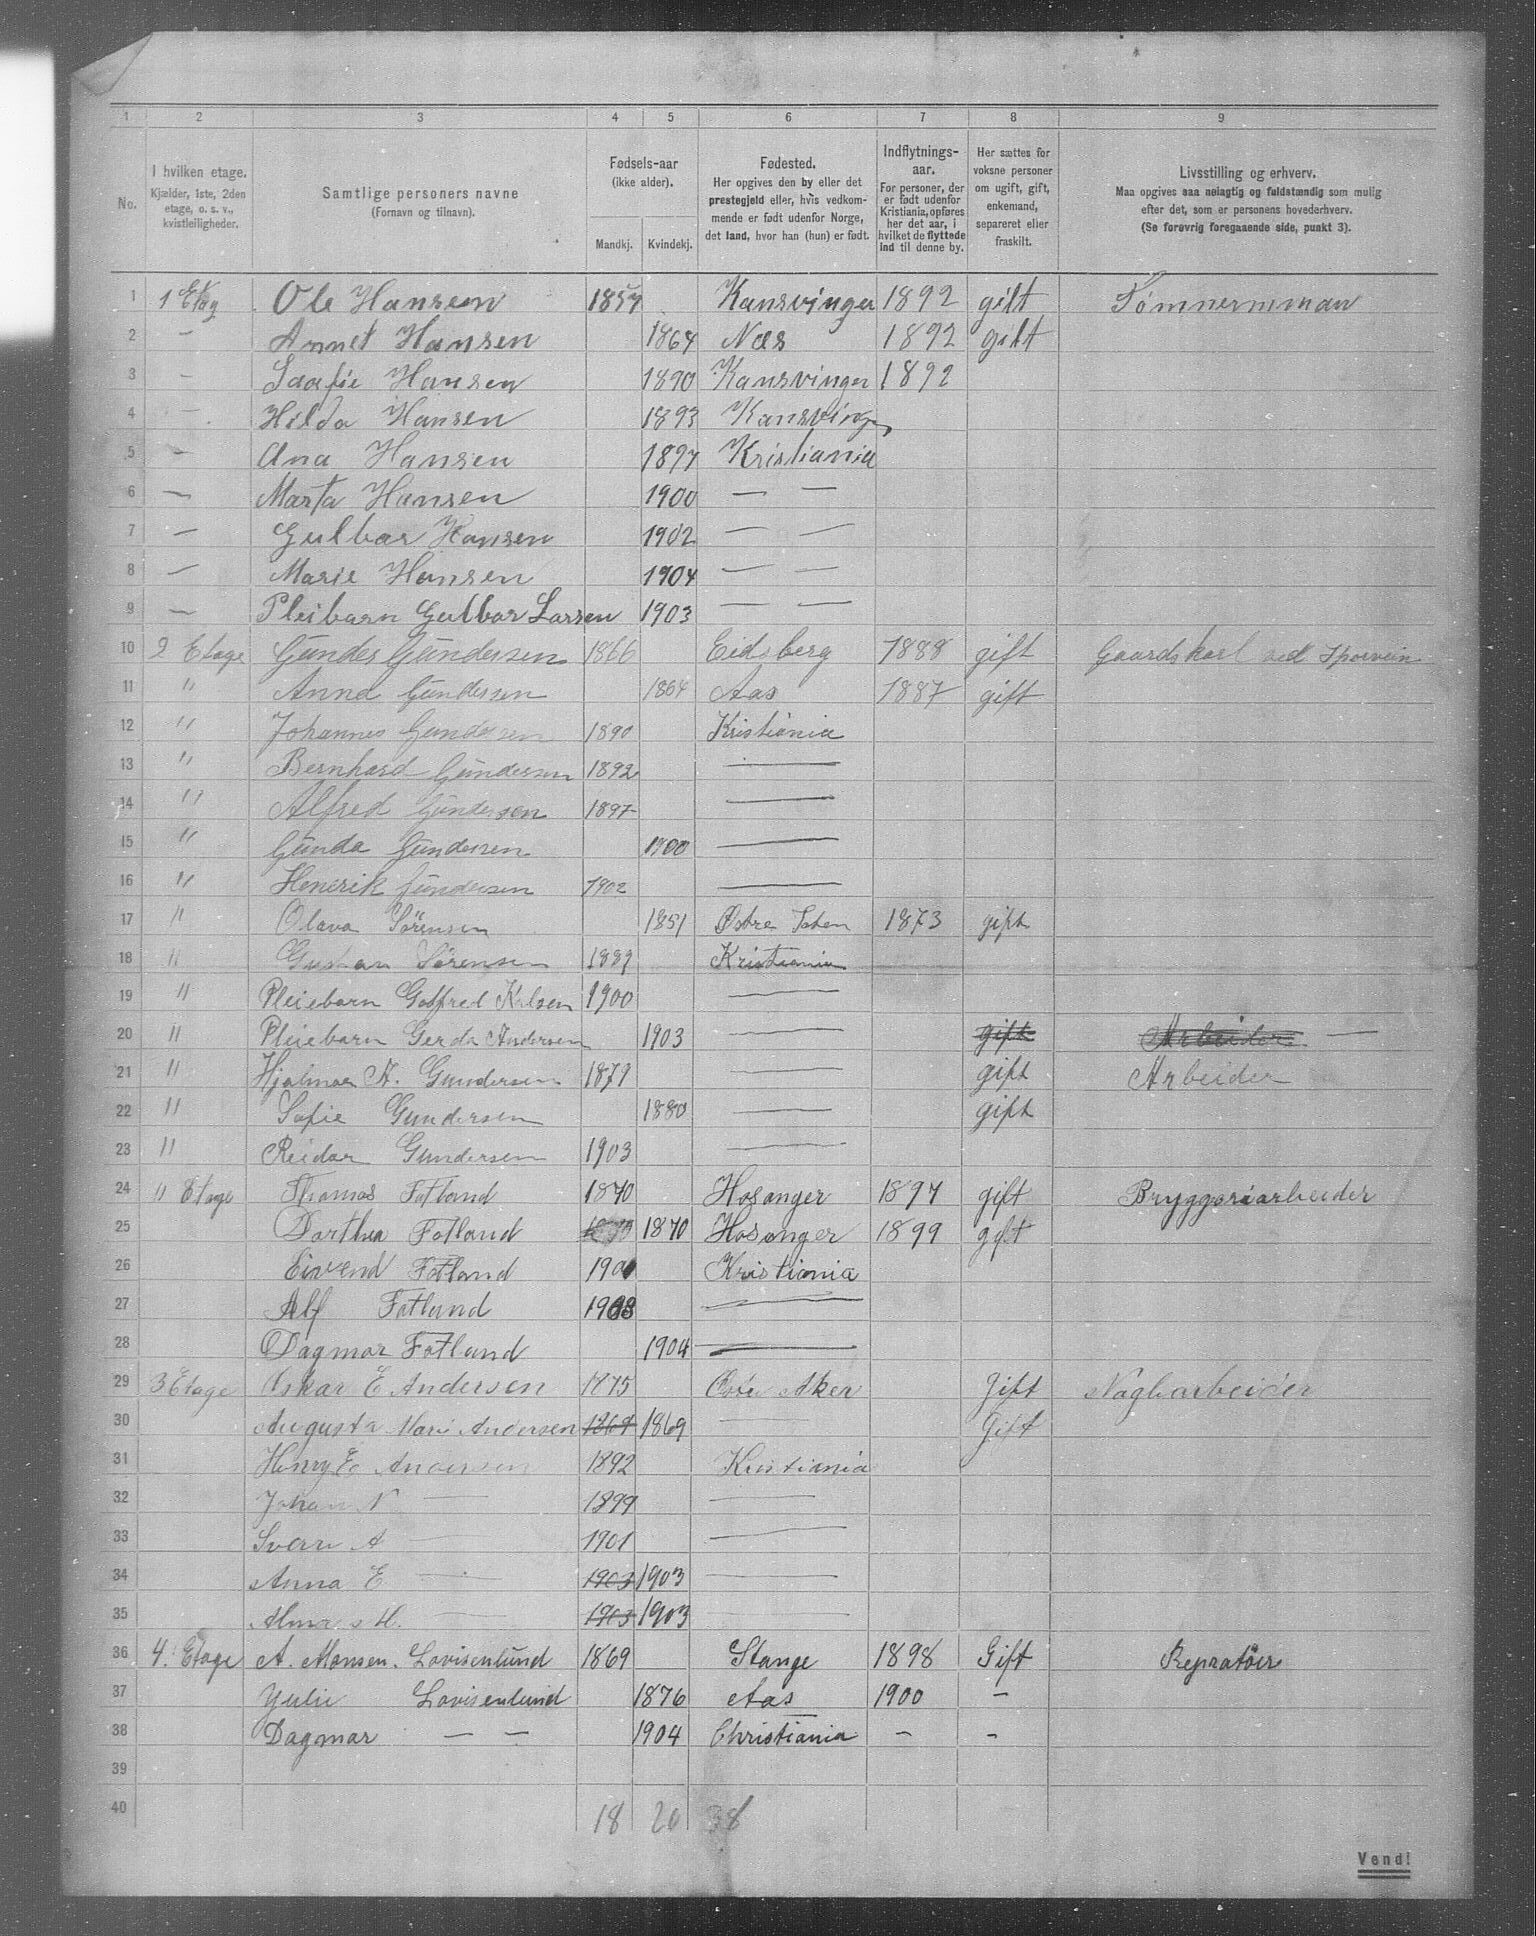 1 2 3 4 5 6 7 8 9
No.
I hvilken etage.
Kjælder, 1ste, 2den
etage, o. s. v.,
kvistleiligheder.
Samtlige personers navne
(Fornavn og tilnavn).
Fødsels-aar
(ikke alder).
Mandkj. Kvindekj.
Fødested.
Her opgives den by eller det
prestegjeld eller, hvis vedkom-
mende er født udenfor Norge,
det land, hvor han (hun) er født.
Indflytnings-
aar.
For personer, der
er født udenfor
Kristiania, opføres
her det aar, i
hvilket de flyttede
ind til denne by.
Her sættes for
voksne personer
om ugift, gift,
enkemand,
separeret eller
fraskilt.
Livsstilling og erhverv.
Maa opgives saa nøiagtig og fuldstændig som mulig
efter det, som er personens hovederhverv.
(Se forøvrig foregaaende side, punkt 3).
1 1 Etag Ole Hansen 1857 Kansvinger 1892 gift Tømmermman
2 — Annet Hansen 1864 Næs 1892 gift
3 — Saafie Hansen 1890 Kansvinger 1892
4 — Hilda Hansen 1893 Kansvinger
5 — Ana Hansen 1897 Kristiania
6 — Marta Hansen 1900 — —
7 — Gulbar Hansen 1902 — —
8 — Marie Hansen 1904 — —
9 — Pleibarn Gulbar Larsen 1903 — —
10 2 Etage Gunder Gundersen 1866 Eidsberg 1888 gift Gaardskarl ved Sporvein
11 " Anna Gundersen 1864 Aas 1887 gift
12 " Johannes Gundersen 1890 Kristiania
13 " Bernhard Gundersen 1892 —
14 " Alfred Gundersen 1897 —
15 " Gunda Gundersen 1900 —
16 " Henrik Gundersen 1902 —
17 " Olava Sørensen 1851 Østre Toten 1873 gift
18 " Gustav Sørensen 1889 Kristiania
19 " Pleiebarn Godfred Karlsen 1900 —
20 " Pleiebarn Gerda Andersen 1903 — gift Arbeider —
21 " Hjalmar A. Gundersen 1879 — gift Arbeider
22 " Sofie Gundersen 1880 — gift
23 " Reidar Gundersen 1903 —
24 " Etage Thomas Fotland 1870 Hosanger 1897 gift Bryggeriarbeider
25 Dorthea Fotland 1870 Hosanger 1899 gift
26 Eivend Fotland 190 Kristiania
27 Alf Fotland 1903 —
28 Dagmar Fotland 1904 —
29 3 Etage Oskar E Andersen 1875 Østre Aker Gift Naglearbeider
30 Augusta Marie Andersen 1869 1869 — Gift
31 Henry E Andersen 1892 Kristiania
32 Johan N — 1899 —
33 Sverre A — 1901 —
34 Anna E — 1903 1903 —
35 Alma M. — 1903 1903 —
36 4. Etage A. Monsen. Lovisenlund 1869 Stange 1898 Gift Repratøer
37 Yulie Lovisenlund 1876 Aas 1900 —
38 Dagmar — — 1904 Christiania — —
39
40 18 20 38
Vend!